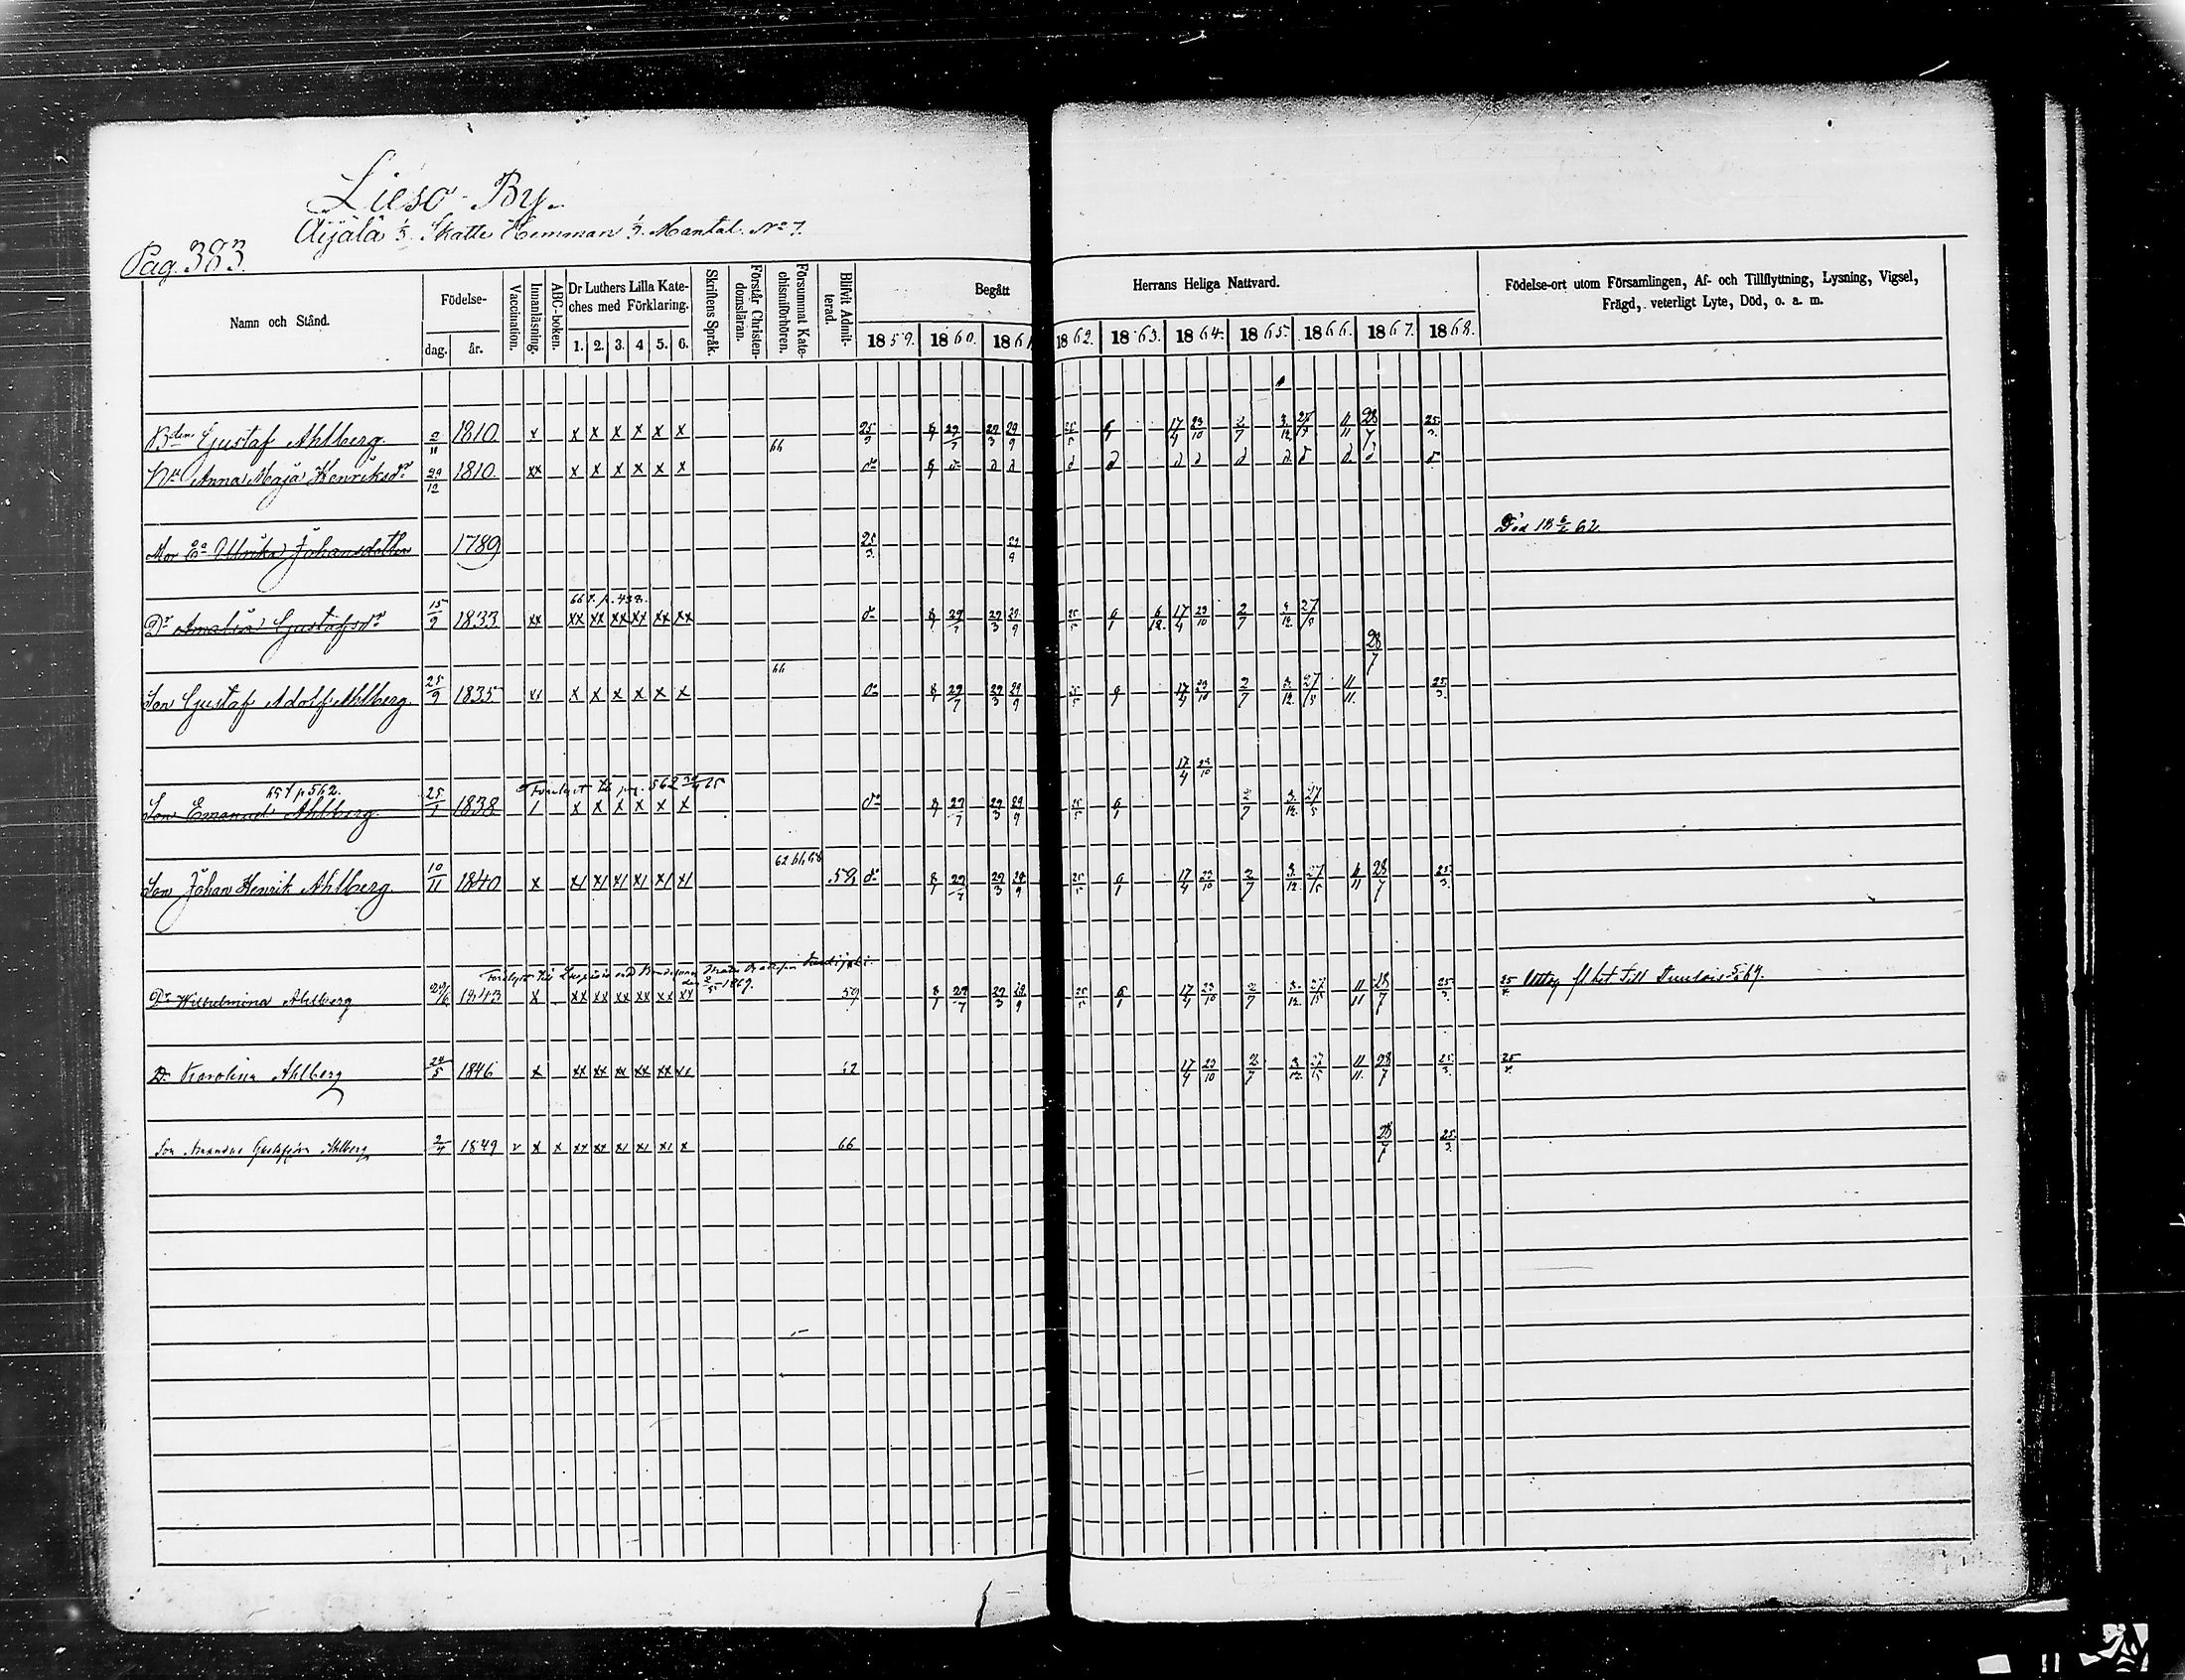 Lieso By.
Äijälä 1/3. Skatte Hemman 1/3. Mantal. No 7.
Pag. 383.
Namn och Stånd.
Födelse-
dag. år.
Vaccination.
Innanläsning.
ABC-boken.
Dr Luthers Lilla Kateches med Förklaring.
1. 2. 3. 4 5. 6.
Skriftens Språk.
Förstår Christendomsläran.
Försummat Katechismiförhören.
Blifvit Admitterad.
Begått Herrans Heliga Nattvard.
1859. 1860. 1861 1862. 1863. 1864. 1865. 1866. 1867. 1868.
Födelse-ort utom Församlingen, Af- och Tillflyttning, Lysning, Vigsel,
Frägd, veterligt Lyte, Död, o. a. m.
Gustaf Ahlberg. 2/11 1810. x x x x x x x 25/3 8/1 29/7 29/3 29/9 25/5 6/1 17/4 23/10 2/7 3/12 27/5 11/11 28/7 25/3
66
Anna Maja Henriksdr 29/12 1810. xx x x x x x x do
Mor Ulrika Johansdotter 1789 25/3 29/9 Död 62.
667. p. 438.
Dr Amalia Gustafsdr 15/9 1833 xx xx xx xx xx xx xx do 8/1 29/7 29/3 29/9 25/5 6/1 6/12 17/4 23/10 2/7 3/12 27/5
28/7
66
Son Gustaf Adolf Ahlberg. 25/9 1835. xx x x x x x x do 8/1 29/7 29/3 29/9 25/5 6/1 17/4 23/10 2/7 3/12 27/5 11/11 25/3
17/4 23/10
p 562. pag. 562
Son Emanuel Ahlberg. 25/1 1838 x x x x x x do 8/1 29/7 29/3 29/9 25/5 6/1 2/7 3/12 27/5
62 66 68
Son Johan Henrik Ahlberg. 10/11 1840 x x/ x/ x/ x/ x/ x/ 59 do 8/1 29/7 29/3 29/9 25/5 6/1 17/4 23/10 2/7 3/12 27/5 28/7 25/3
1869.
Dr Wilhelmina Ahlberg 29/6 1843 x xx xx xx xx xx xx 59 8/1 29/7 29/3 29/9 25/5 6/1 17/4 23/10 2/7 3/12 27/5 11/11 28/7 25/3 Till
D. Karolina Ahlberg 24/5 1846 x xx xx xx xx xx 17/4 23/10 2/7 3/12 27/5 11/11 28/7 25/3
Son Gustafson Ahlberg 2/4 1849 v x x xx xx x/ x/ x/ x 66 28/7 25/3